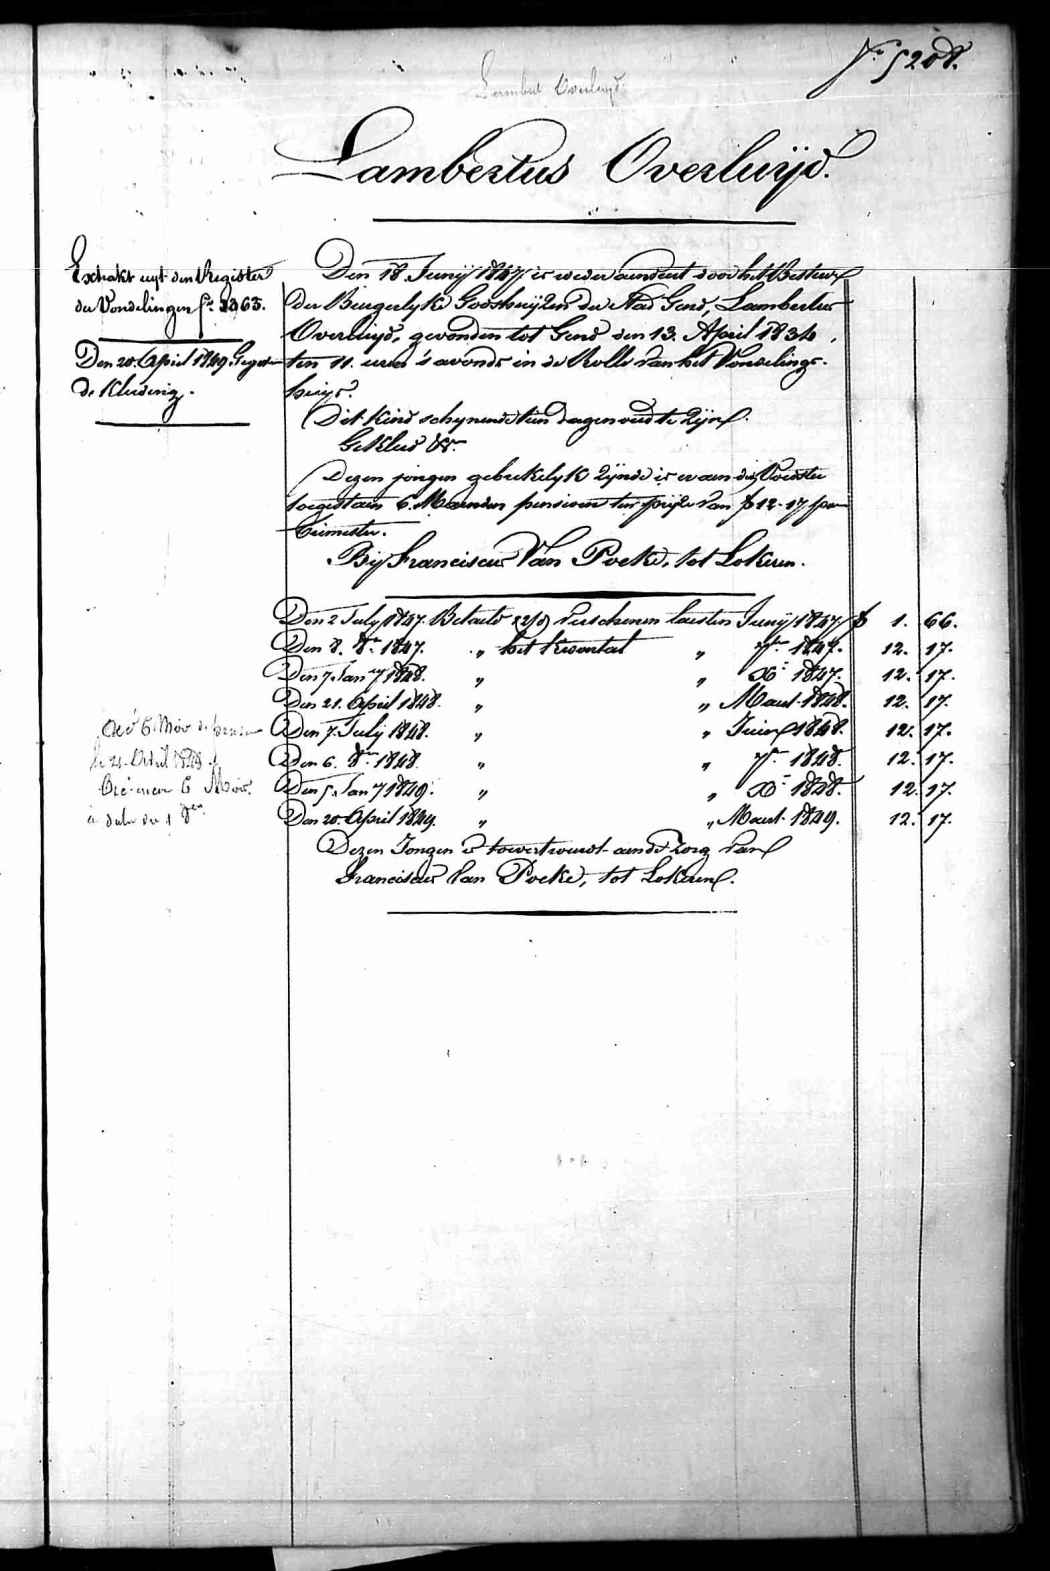 N.° 5208.
Lambert Overluyd
Lambertus Overluijd.
Extrakt uyt den Register
der Vondelingen f.° 1963.
Den 20. April 1849. Gegeven
de Kleeding.
Den 18. Junij 1847 is weder aanveert door het Bestuur
der Burgerlyke Godshuijzen der Stad Gend, Lambertus
Overluijd, gevonden tot Gend den 13. April 1834,
ten 11. uren 's avonds in de Rolle van het Vondelings-
huijs.
Dit Kind schynende tien dagen oud te zijn.
Gekleed &a.
Dezen jongen gebrekelyk zijnde is er aen die Voedster
toegestaen 6. Maenden pensioen ten prijze van f 12-17 per
Trimester.
Bij Franciscus Van Poeke, tot Lokeren.
Den 2 July 1847. Betaeld verschenen laesten Junij 1847 f 1. 66.
Den 8. 8.er 1847. „ het trimestat „ 7.er 1847. 12. 17.
Den 7. Jan.ry 1848. „ „ X.r 1847. 12. 17.
Den 21. April 1848. „ „ Maart 1848. 12. 17.
Den 7. July 1848. „ „ Juin 1848. 12. 17.
Den 6. 8.er 1848. „ „ 7.er 1848. 12. 17.
Den 5. Jan.ry 1849. „ „ X.r 1848. 12. 17.
Den 20. April 1849. „ „ Maart 1849. 12. 17.
6 Mois de
le 21 Avril 1848
6 Mois
à dater du 1 8.er
Dezen Jongen is toevertrouwd aan de Zorg van
Franciscus Van Poeke, tot Lokeren.